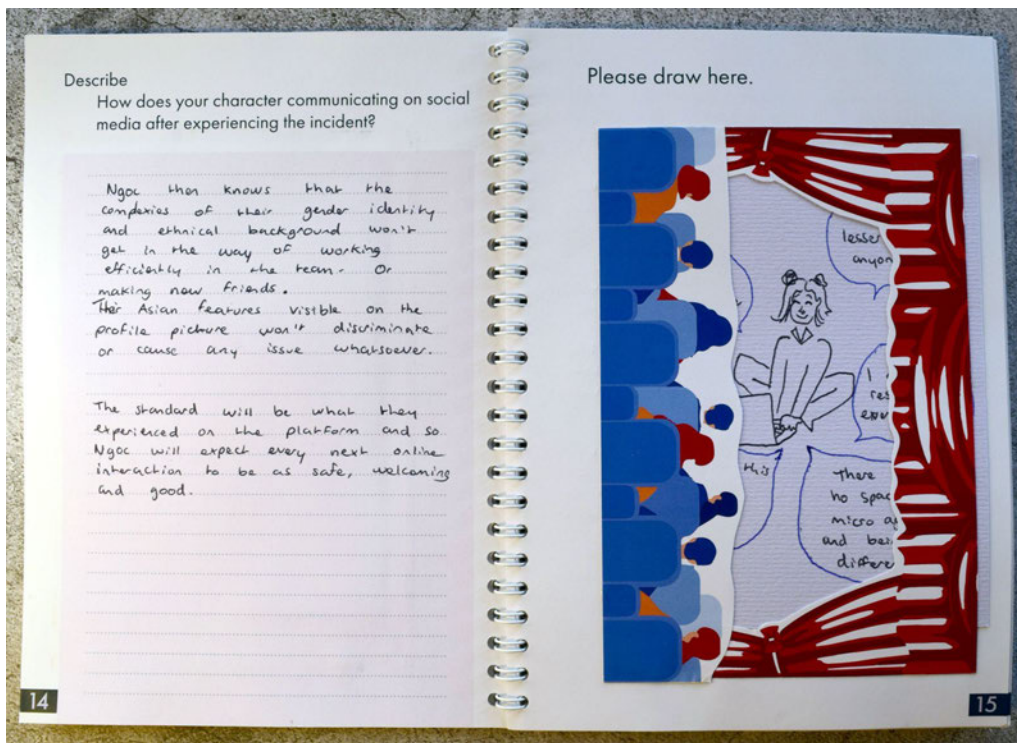 Describe
How does your character communicating on social
media after experiencing the incident?
Ngoc then knows that the
complexies of their gender identity
and ethnical background won't
get in the way of working
efficiently in the team. Or
making new friends.
Their Asian features visible on the
profile picture won't discriminate
or cause any issue whatsoever.
The standard will be what they
experienced on the platform and so
Ngoc will expect every next online
interaction to be as safe, welcoming
and good.
14
Please draw here.
lesser
anyon
I
res
this
There
no spac
micro ag
and bei
differe
15